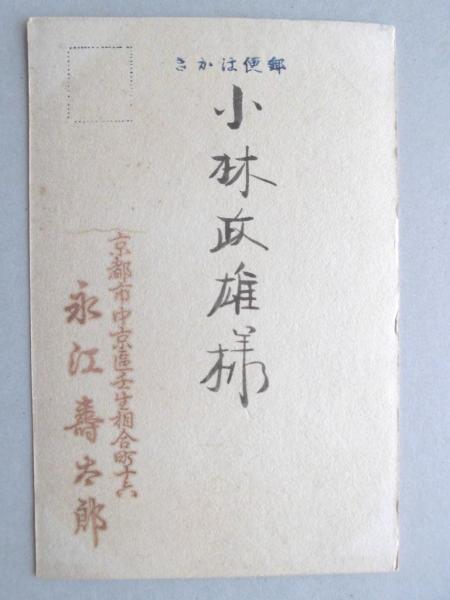 郵便はかき
小林政雄様
京都市中京區壬生相合町十六
永江壽太郎